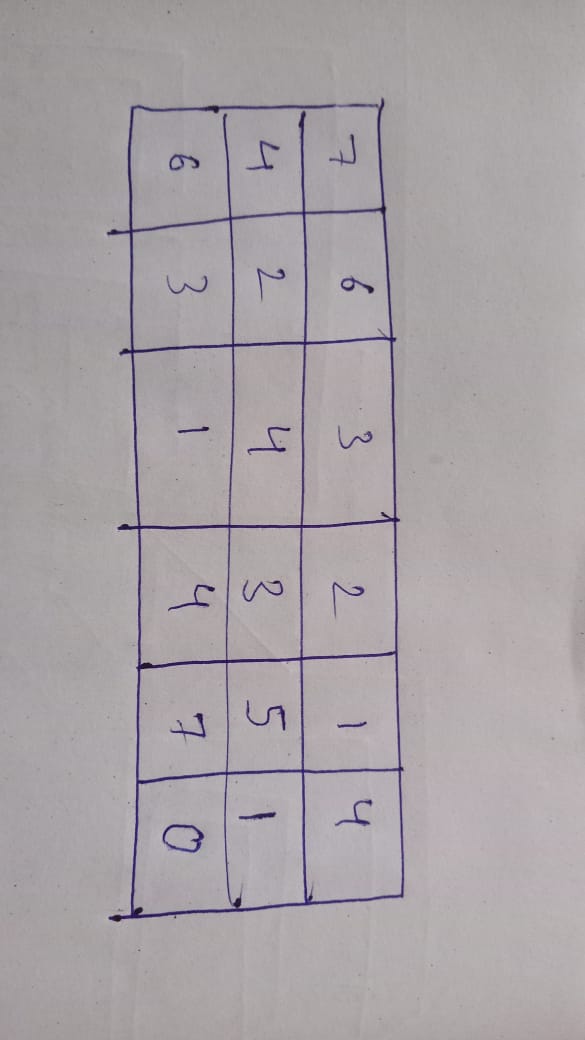 7 6 3 2 1 4
4 2 4 3 5 1
6 3 1 4 7 0